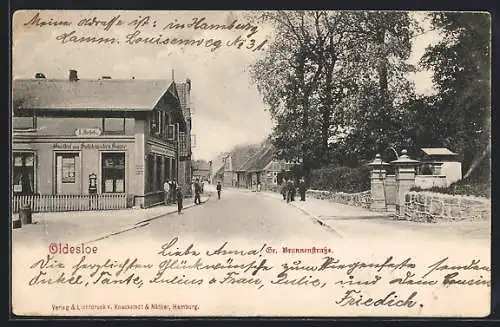 Meine Adresse ist: in Hamburg
Hamm. Louisenweg No 31.
Gasthof zum
Oldesloe
Gr. Brunnenstraße.
Liebe Anna!
Die herzlichen Glückwünsche zum Wiegenfeste, senden
Onkel, Tante, Julius u Frau, Julie, und dem Cousin
Friedrich.
Verlag & Lichtdruck v. Knackstedt & Näther, Hamburg.